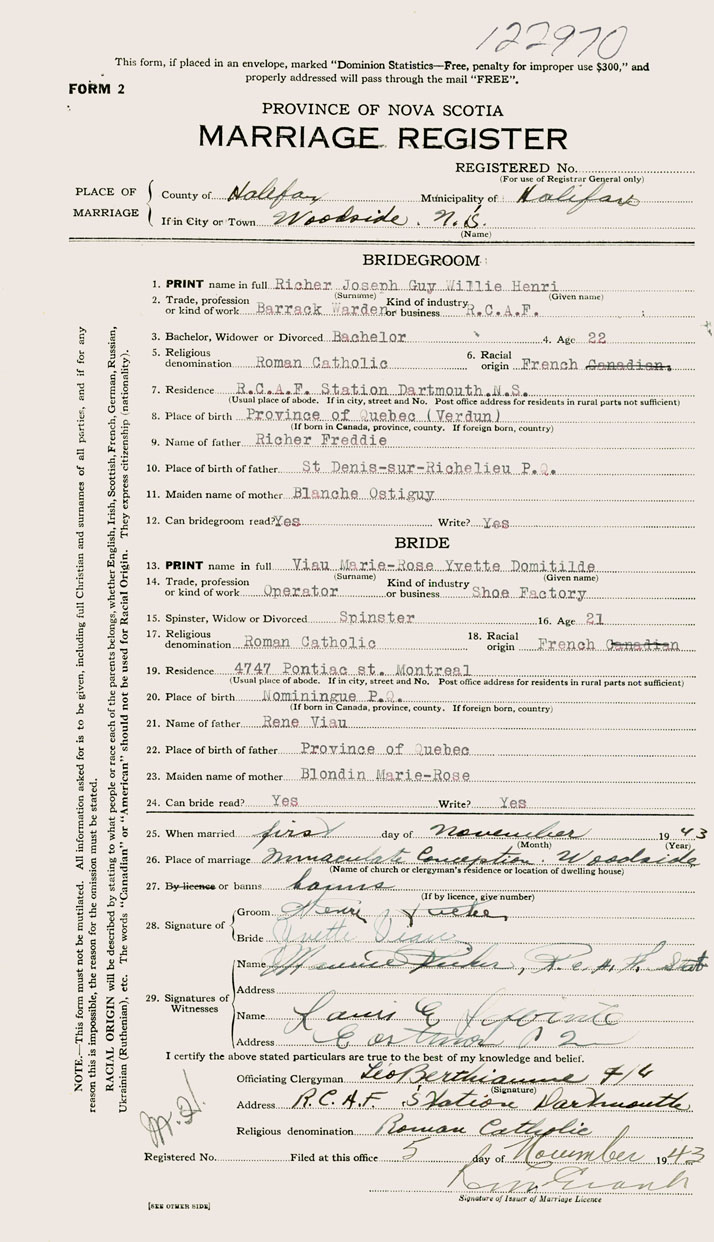 122970
This form, if placed in an envelope, marked "Dominion Statistics—Free, penalty for improper use $300," and
properly addressed will pass through the mail "FREE".
FORM 2
PROVINCE OF NOVA SCOTIA
MARRIAGE REGISTER
REGISTERED No.
(For use of Registrar General only)
PLACE OF MARRIAGE
County of Halifax Municipality of Halifax
If in City or Town Woodside. N.S.
(Name)
BRIDEGROOM
1. PRINT name in full Richer Joseph Guy Willie Henri
(Surname) (Given name)
2. Trade, profession or kind of work Barrack Warden Kind of industry or business R.C.A.F.
3. Bachelor, Widower or Divorced Bachelor 4. Age 22
5. Religious denomination Roman Catholic 6. Racial origin French Canadian.
7. Residence R.C.A.F. Station Dartmouth N.S.
(Usual place of abode. If in city, street and No. Post office address for residents in rural parts not sufficient)
8. Place of birth Province of Quebec (Verdun)
(If born in Canada, province, county. If foreign born, country)
9. Name of father Richer Freddie
10. Place of birth of father St Denis-sur-Richelieu P.Q.
11. Maiden name of mother Blanche Ostiguy
12. Can bridegroom read? Yes Write? Yes
BRIDE
13. PRINT name in full Viau Marie-Rose Yvette Domitilde
(Surname) (Given name)
14. Trade, profession or kind of work Operator Kind of industry or business Shoe Factory
15. Spinster, Widow or Divorced Spinster 16. Age 21
17. Religious denomination Roman Catholic 18. Racial origin French Canadian
19. Residence 4747 Pontiac st. Montreal
(Usual place of abode. If in city, street and No. Post office address for residents in rural parts not sufficient)
20. Place of birth Nominingue P.Q.
(If born in Canada, province, county. If foreign born, country)
21. Name of father Rene Viau
22. Place of birth of father Province of Quebec
23. Maiden name of mother Blondin Marie-Rose
24. Can bride read? Yes Write? Yes
25. When married first day of November 1943
(Month) (Year)
26. Place of marriage Immaculate Conception. Woodside
(Name of church or clergyman's residence or location of dwelling house)
27. By licence or banns banns
(If by licence, give number)
28. Signature of
Groom Henri Richer
Bride Yvette Viau
29. Signatures of Witnesses
Name Maurice Richer, R.C.A.F.
Address
Name Louis Lapointe
Address
I certify the above stated particulars are true to the best of my knowledge and belief.
Officiating Clergyman Léo Berthiaume F/L
(Signature)
Address R.C.A.F. Station Dartmouth
Religious denomination Roman Catholic
Registered No. Filed at this office 5 day of November 1943
Signature of Issuer of Marriage Licence
[SEE OTHER SIDE]
NOTE.—This form must not be mutilated. All information asked for is to be given, including full Christian and surnames of all parties, and if for any
reason this is impossible, the reason for the omission must be stated.
RACIAL ORIGIN will be described by stating to what people or race each of the parents belongs, whether English, Irish, Scottish, French, German, Russian,
Ukrainian (Ruthenian), etc. The words "Canadian" or "American" should not be used for Racial Origin. They express citizenship (nationality).